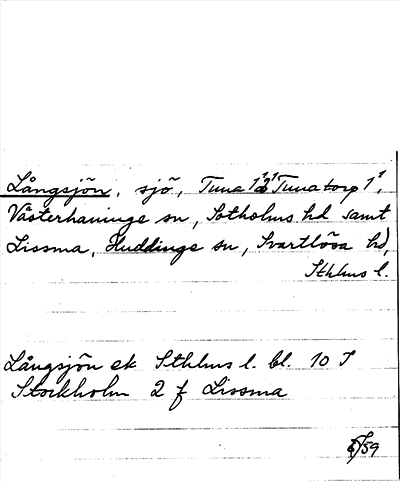 Långsjön, sjö, Tuna 1² o Tunatorp 1¹,
Västerhaninge sn, Sotholms hd samt
Lissma, Huddinge sn, Svartlösa hd,
Sthlms l.
Långsjön ek Sthlms l. bl. 10 I
Stockholm 2 f Lissma
/59